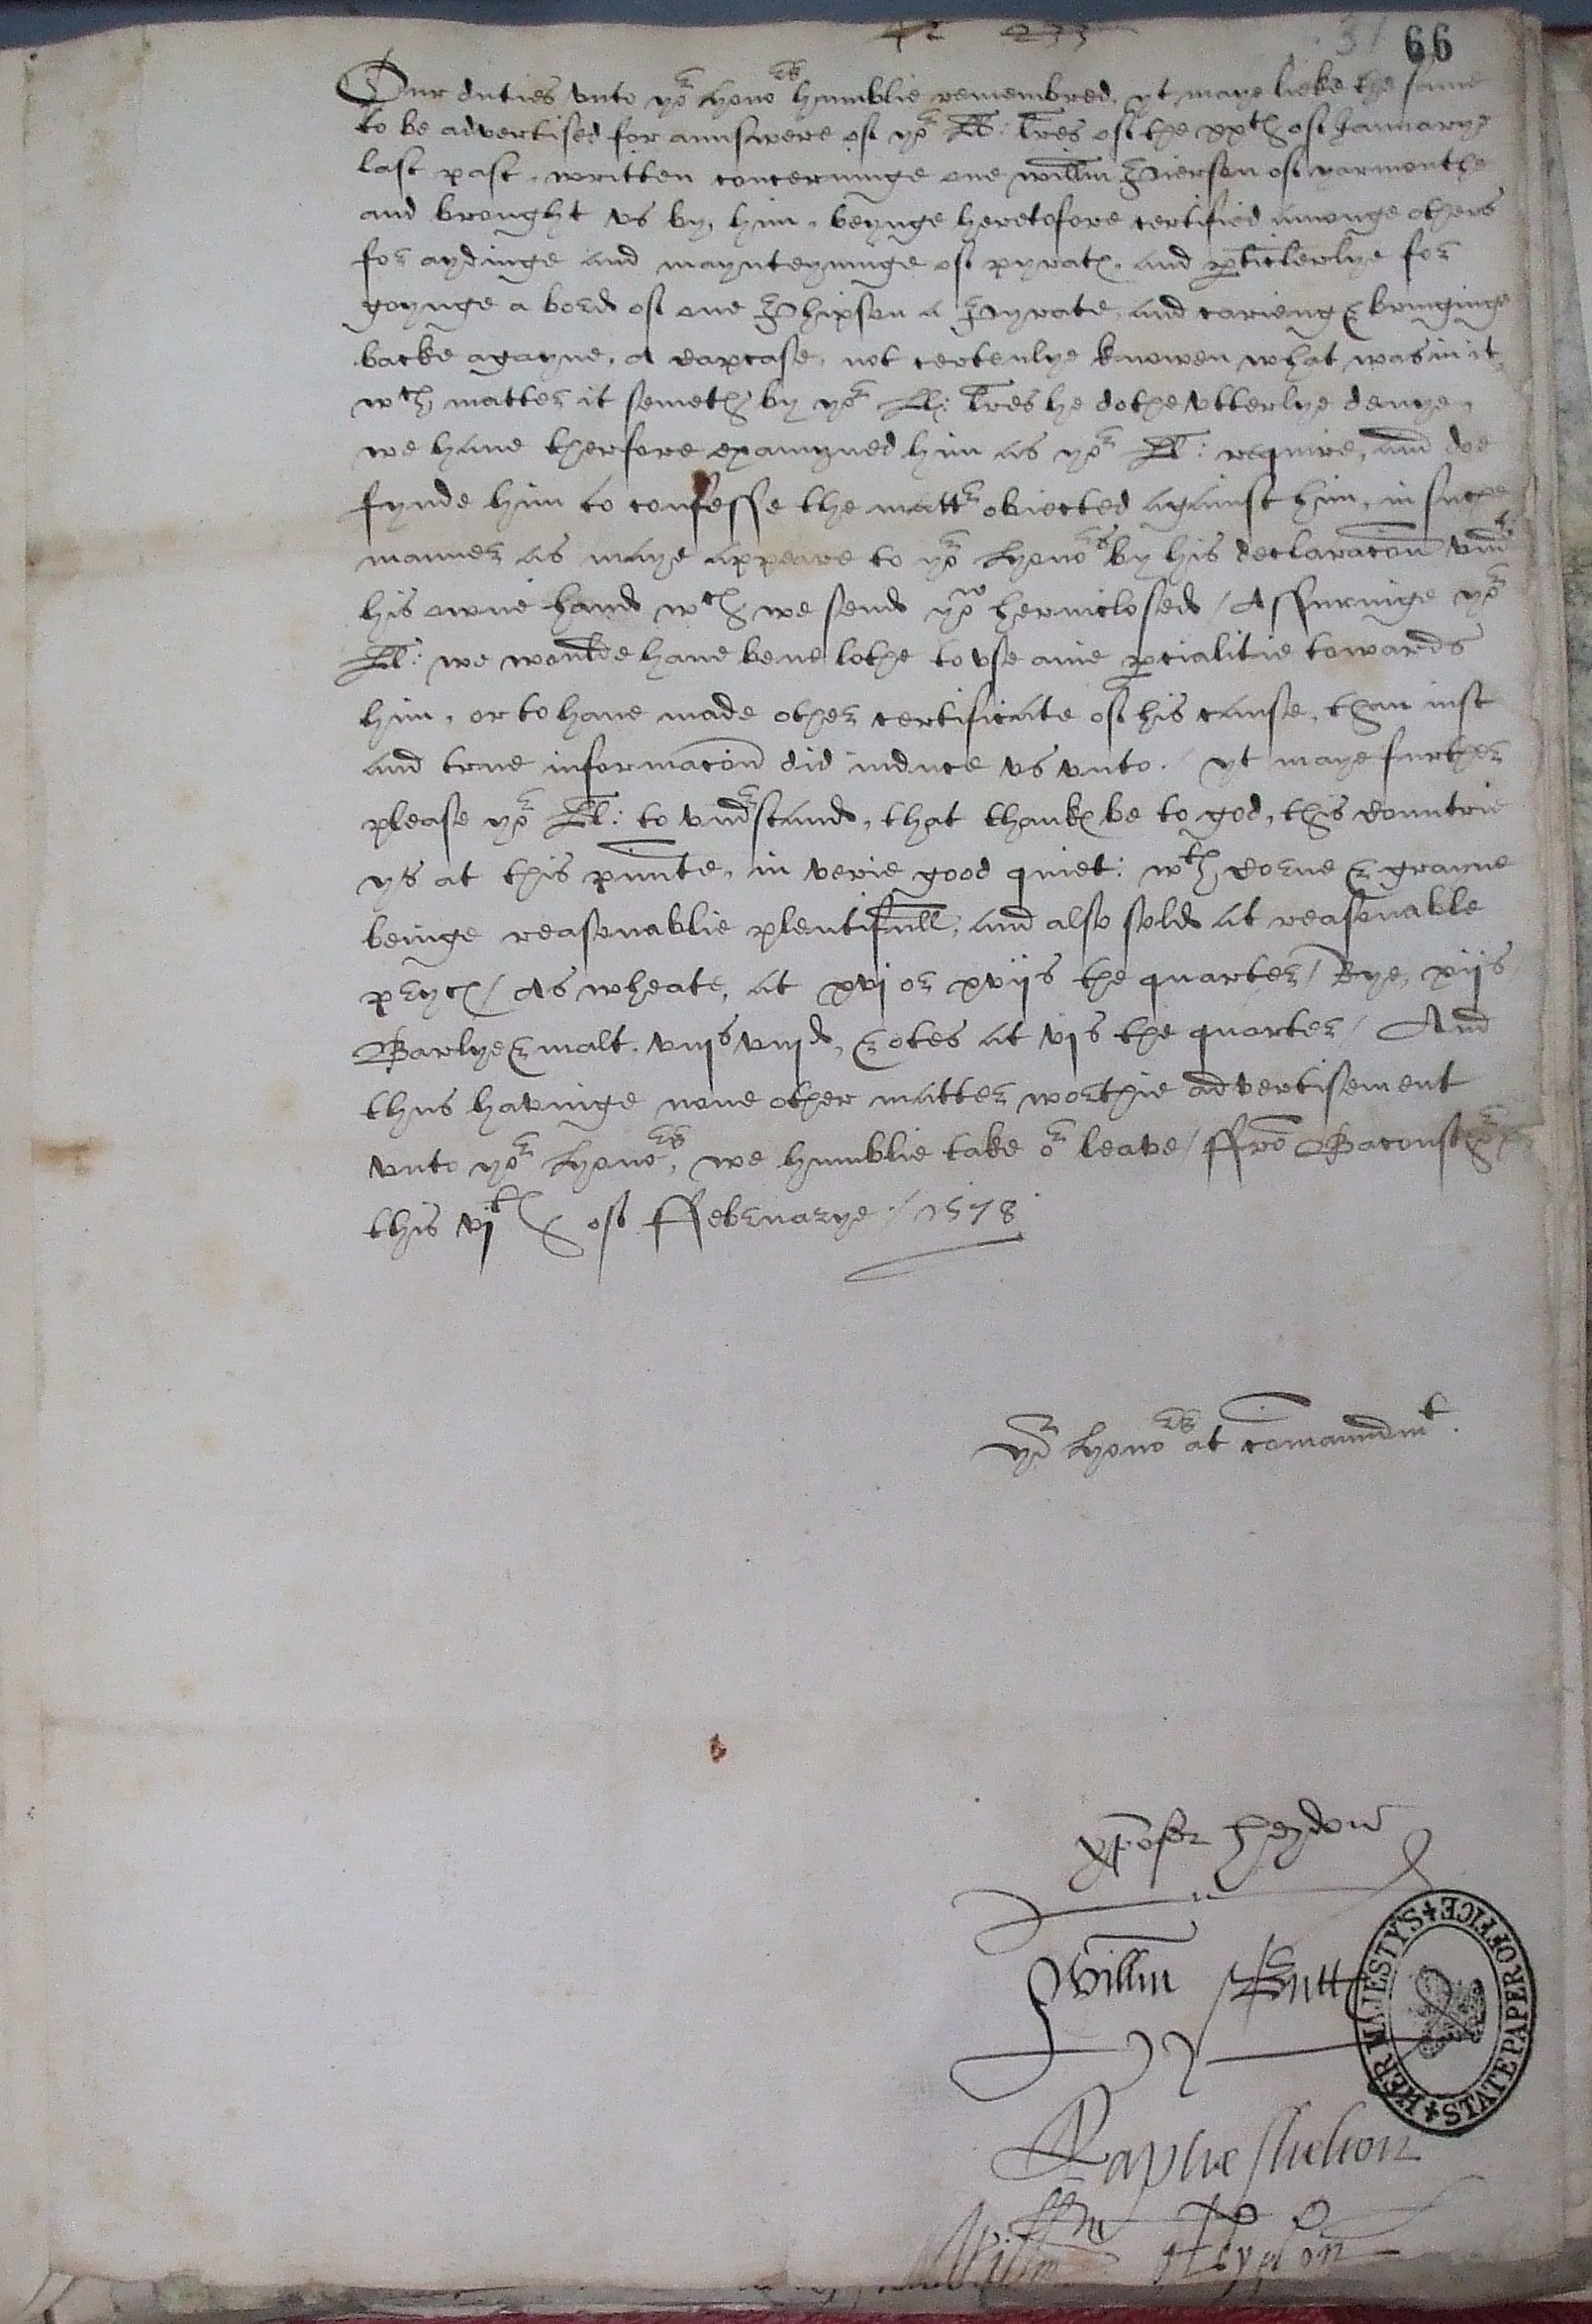 66
Our duties vnto yor honors humblie remembred, yt maye lieke the same
to be advertised for aunswere of yor LL: lres of the xxth of Januarye
last past, written concerninge one willm Pierson of yarmouthe
and brought vs by him, beynge heretofore certified amonge others
for aydinge and maynteyninge of pyrats, and pticlerlye for
goynge a bord of one Phipson a Pyrate, and carieng & bringinge
backe agayne, a capcase, not certenlye knowen what was in it
wch matter it semeth by yor LL: lres he dothe vtterlye denye,
we haue therfore examyned him as yor LL: require, and doe
fynde him to confesse the mattr obiected against him, in suche
manner as maye appeare to yor honors by his declaracon vndr
his owne hand wch we send you hereinclosed / Assuringe yor
LL: we woulde haue bene lothe to vse anie pcialitie towards
him, or to haue made other certificate of his cause, than iust
and true informacon did induce vs vnto. / yt maye further
please yor LL: to vndrstand, that thanks be to god, this countrie
ys at this pnnte, in verie good quiet: wth corne & grayne
beinge reasonablie plentifull, and also sold at reasonable
pryces / As wheate, at xvj or xvijs the quarter / Rye, xijs
Barlye & malt, viijs viijd, & otes at vjs the quarter / And
thus havinge none other matter worthie advertisement
vnto yor honors, we humblie take or leave / ffro Baconsthor
this vjth of ffebruarye / 1578
yor honors at comaundmt.
xpofer heydon
Willm Butt
HER MAJESTY'S STATE PAPER OFFICE
Raphe Shelton
Willm Heydon